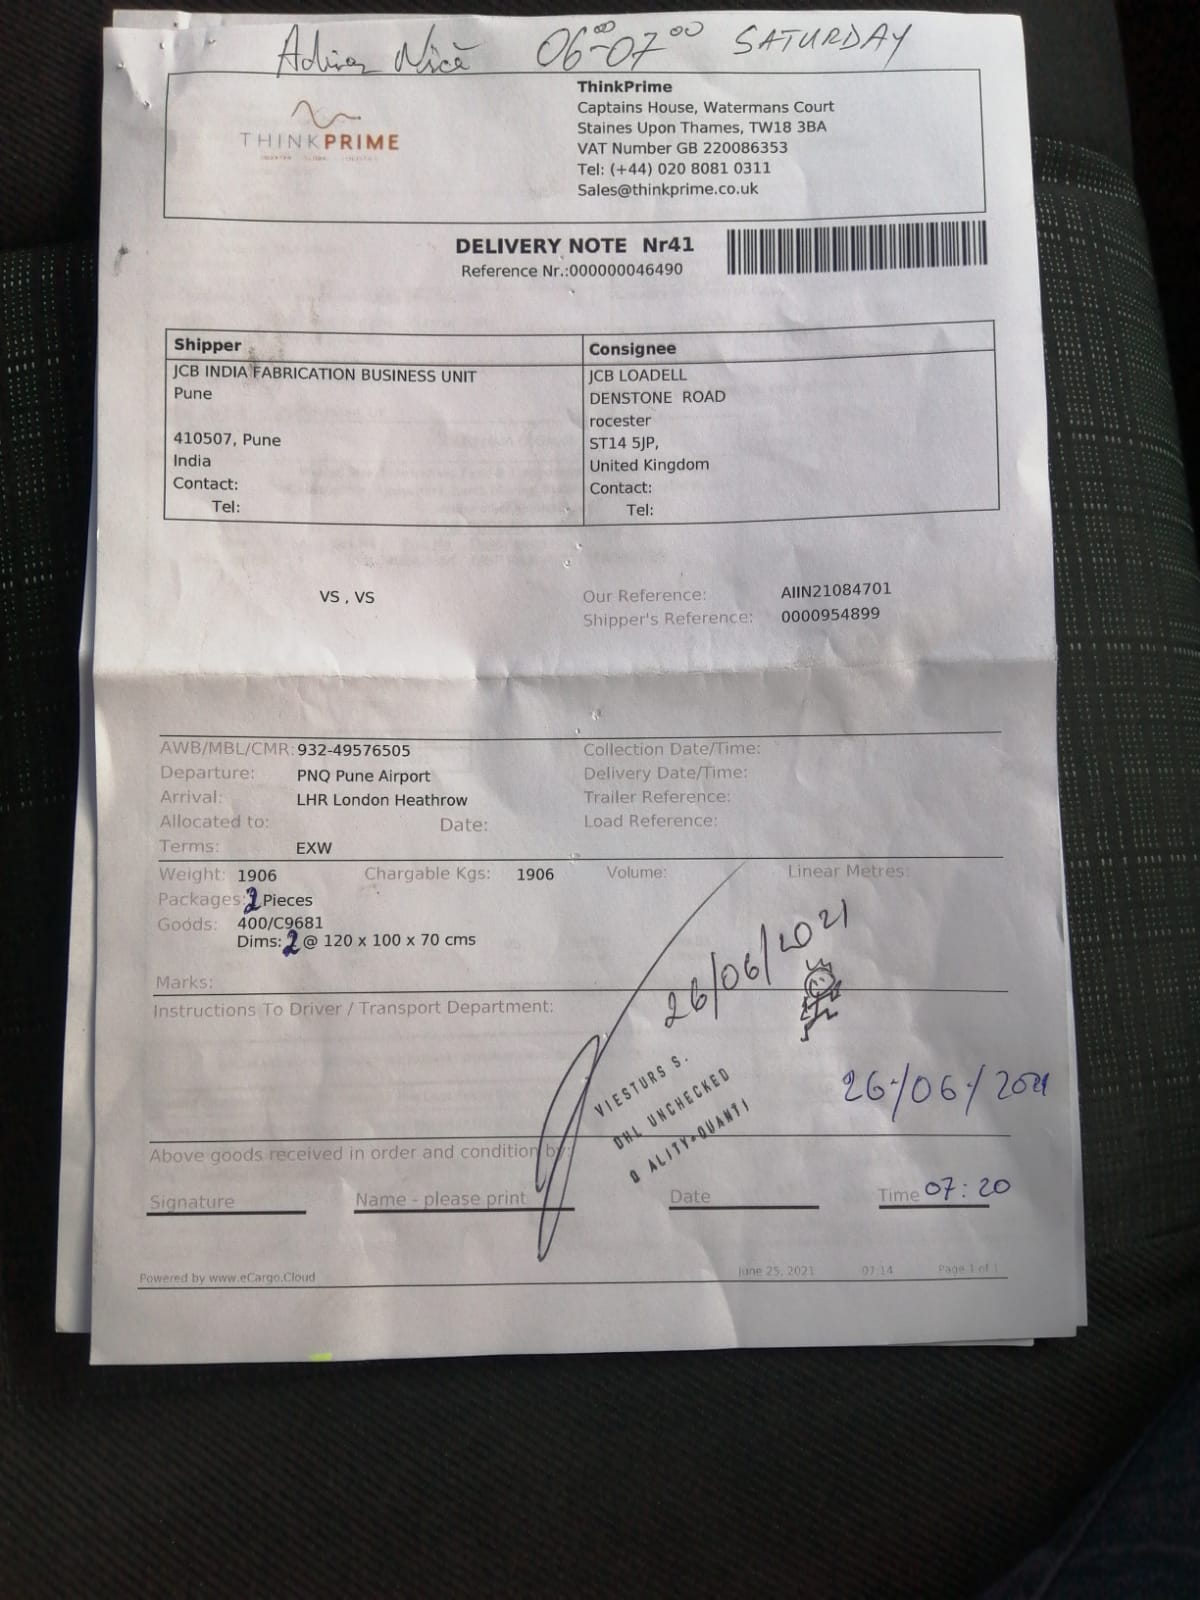 Adrian Nică 06⁰⁰-07⁰⁰ SATURDAY
THINKPRIME
ThinkPrime
Captains House, Watermans Court
Staines Upon Thames, TW18 3BA
VAT Number GB 220086353
Tel: (+44) 020 8081 0311
Sales@thinkprime.co.uk
DELIVERY NOTE Nr41
Reference Nr.:000000046490
Shipper
JCB INDIA FABRICATION BUSINESS UNIT
Pune
410507, Pune
India
Contact:
Tel:
Consignee
JCB LOADELL
DENSTONE ROAD
rocester
ST14 5JP,
United Kingdom
Contact:
Tel:
VS , VS
Our Reference: AIIN21084701
Shipper's Reference: 0000954899
AWB/MBL/CMR: 932-49576505 Collection Date/Time:
Departure: PNQ Pune Airport Delivery Date/Time:
Arrival: LHR London Heathrow Trailer Reference:
Allocated to: Date: Load Reference:
Terms: EXW
Weight: 1906 Chargable Kgs: 1906 Volume: Linear Metres:
Packages: 2 Pieces
Goods: 400/C9681
Dims: 2 @ 120 x 100 x 70 cms
Marks:
Instructions To Driver / Transport Department:
26/06/2021
VIESTURS S.
DHL UNCHECKED
Q ALITY+QUANTI
26/06/2021
Above goods received in order and condition by:
Signature Name - please print Date Time 07:20
Powered by www.eCargo.Cloud June 25, 2021 07:14 Page 1 of 1